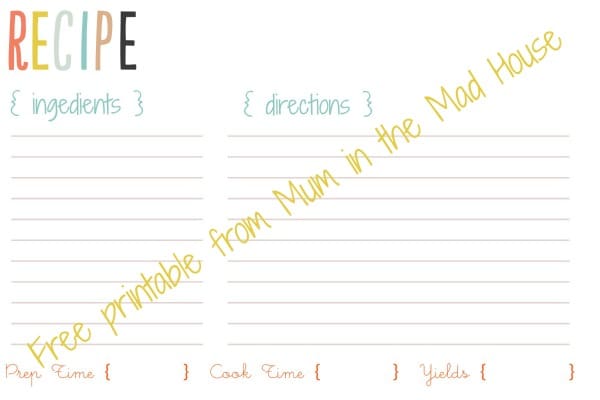 RECIPE
{ ingedients }
{ directions }
Free printable from Mum in the Mad House
Prep Time { }
Cook Time { }
Yields { }